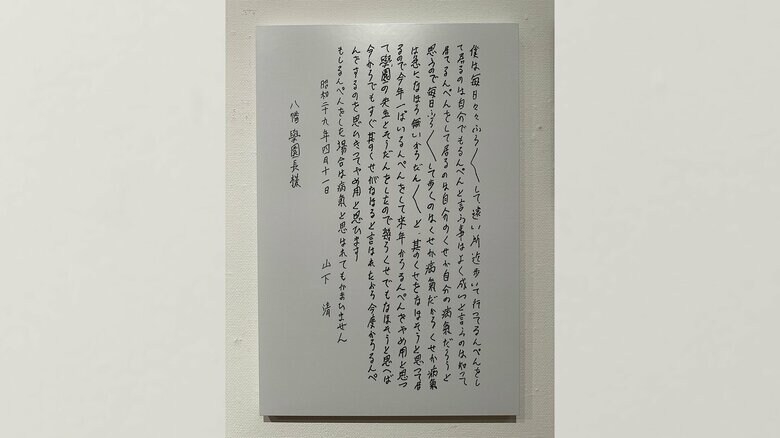 僕は毎日々々ふら〱して遠い所迄歩いて行ってるんぺんをし
て居るのは自分でもるんぺんと言ふ事はよく成いと言うのは知って
居てるんぺんをして居るのは自分のくせか自分の病氣だろうと
思うので毎日ふら〱して歩くのはくせか病氣だからくせか病氣
は急になほら無いからだん〱と、其のくせをなほそうと思って居
るので今年一ぱいるんぺんをして来年からるんぺんをやめ用と思っ
て學園の先生とそうだんをしたので幾らくせでもなほそうと思へば
今からでもすぐ其のくせがなほると言はれたから今度からるんぺ
んをするのを思ひきってやめ用と思ひます
もしるんぺんをした場合は病氣と思はれてもかまひません
昭和二十九年四月十一日 山下 清
八幡學園長様